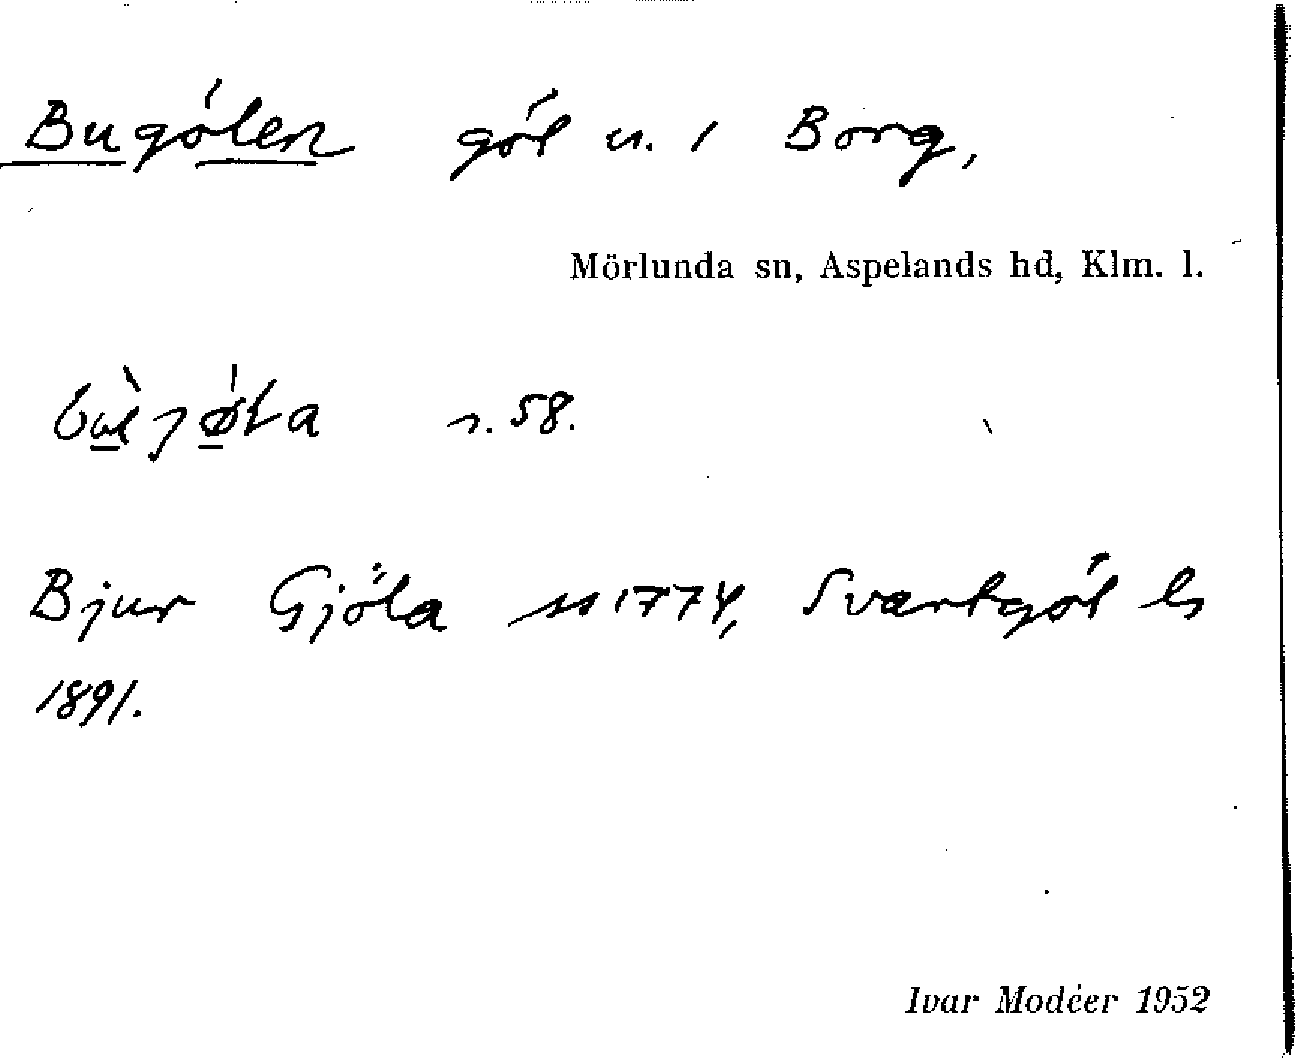 Bugölen göl n. / Borg,
Mörlunda sn, Aspelands hd, Klm. l.
r. 58.
Bjur Gjöla 1774, Svartgöl ls
1891.
Ivar Modéer 1952